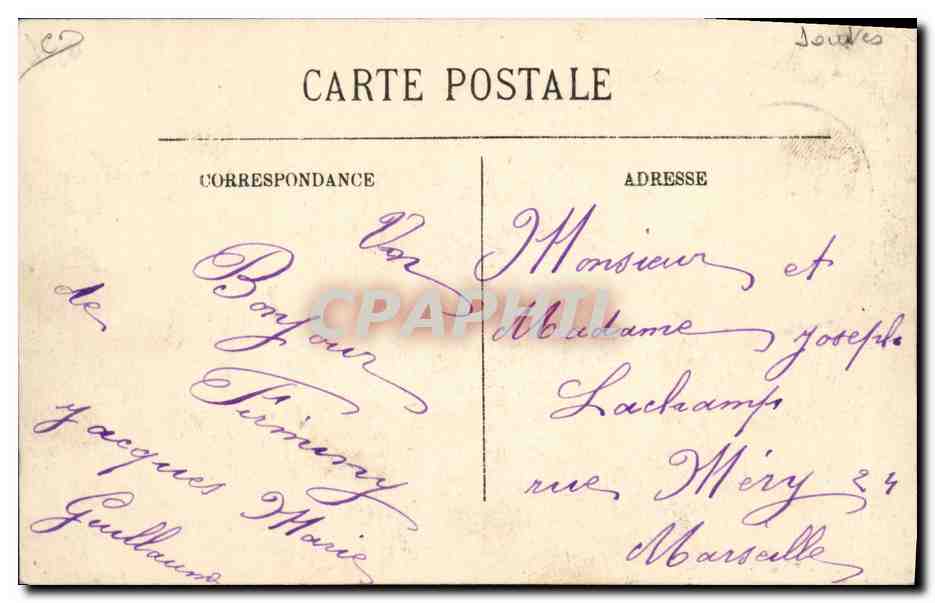 CARTE POSTALE
CORRESPONDANCE
ADRESSE
Un
Bonjour
de
Firminy
Jacques Marie
Guillaume
Monsieur et
Madame Joseph
Lachamp
rue Méry 24
Marseille
CPAPHIL